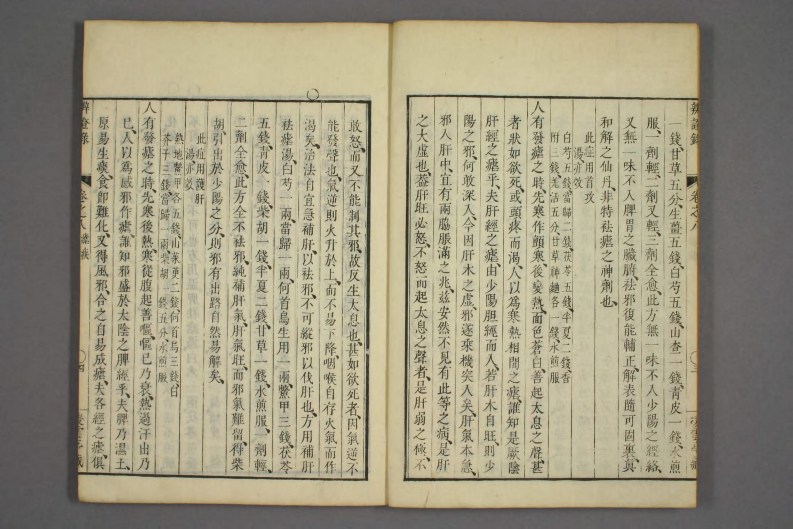 辨證錄
卷之八
一錢甘草五分生薑五錢白芍五錢山查一錢青皮一錢水煎
服一劑輕二劑又輕三劑全愈此方無一味不入少陽之經絡
又無一味不入脾胃之臟腑祛邪復能輔正解表隨可固裏真
和解之仙丹非特祛瘧之神劑也
此症用首攻
湯亦效
白芍五錢當歸二錢茯苓五錢半夏二錢香
附三錢羌活五分甘草神麯各一錢水煎服
人有發瘧之時先寒作顫寒後變熱面色蒼白善起太息之聲甚
者狀如欲死或頭疼而渴人以為寒熱相間之瘧誰知是厥陰
肝經之瘧乎夫肝經之瘧由少陽胆經而入若肝木自旺則少
陽之邪何敢深入今因肝木之虛邪遂乘機突入矣肝氣本急
邪入肝中宜有兩脇脹滿之兆茲安然不見有此等之病是肝
之大虛也葢肝旺必怒不怒而起太息之聲者是肝弱之極不
敢怒而又不能制其邪故反生太息也甚如欲死者因氣逆不
能發聲也氣逆則火升於上而不易下降咽喉自存火氣而作
渴矣治法自宜急補肝以祛邪不可縱邪以伐肝也方用補肝
祛瘧湯白芍一兩當歸一兩何首烏生用一兩鱉甲三錢茯苓
五錢青皮一錢柴胡一錢半夏二錢甘草一錢水煎服一劑輕
二劑全愈此方全不祛邪純補肝氣肝氣旺而邪氣難留得柴
胡引出於少陽之分則邪有出路自然易解矣
此症用護肝
湯亦效
熟地鱉甲各五錢山茱萸二錢何首烏三錢白
芥子三錢當歸一兩柴胡一錢五分水煎服
人有發瘧之時先寒後熱寒從腹起善嘔嘔已乃衰熱過汗出乃
已人以為感邪作瘧誰知邪盛於太陰之脾經乎夫脾乃濕土
原易生痰食即難化又得風邪合之自易成瘧夫各經之瘧俱
辨證錄
卷之八瘧疾